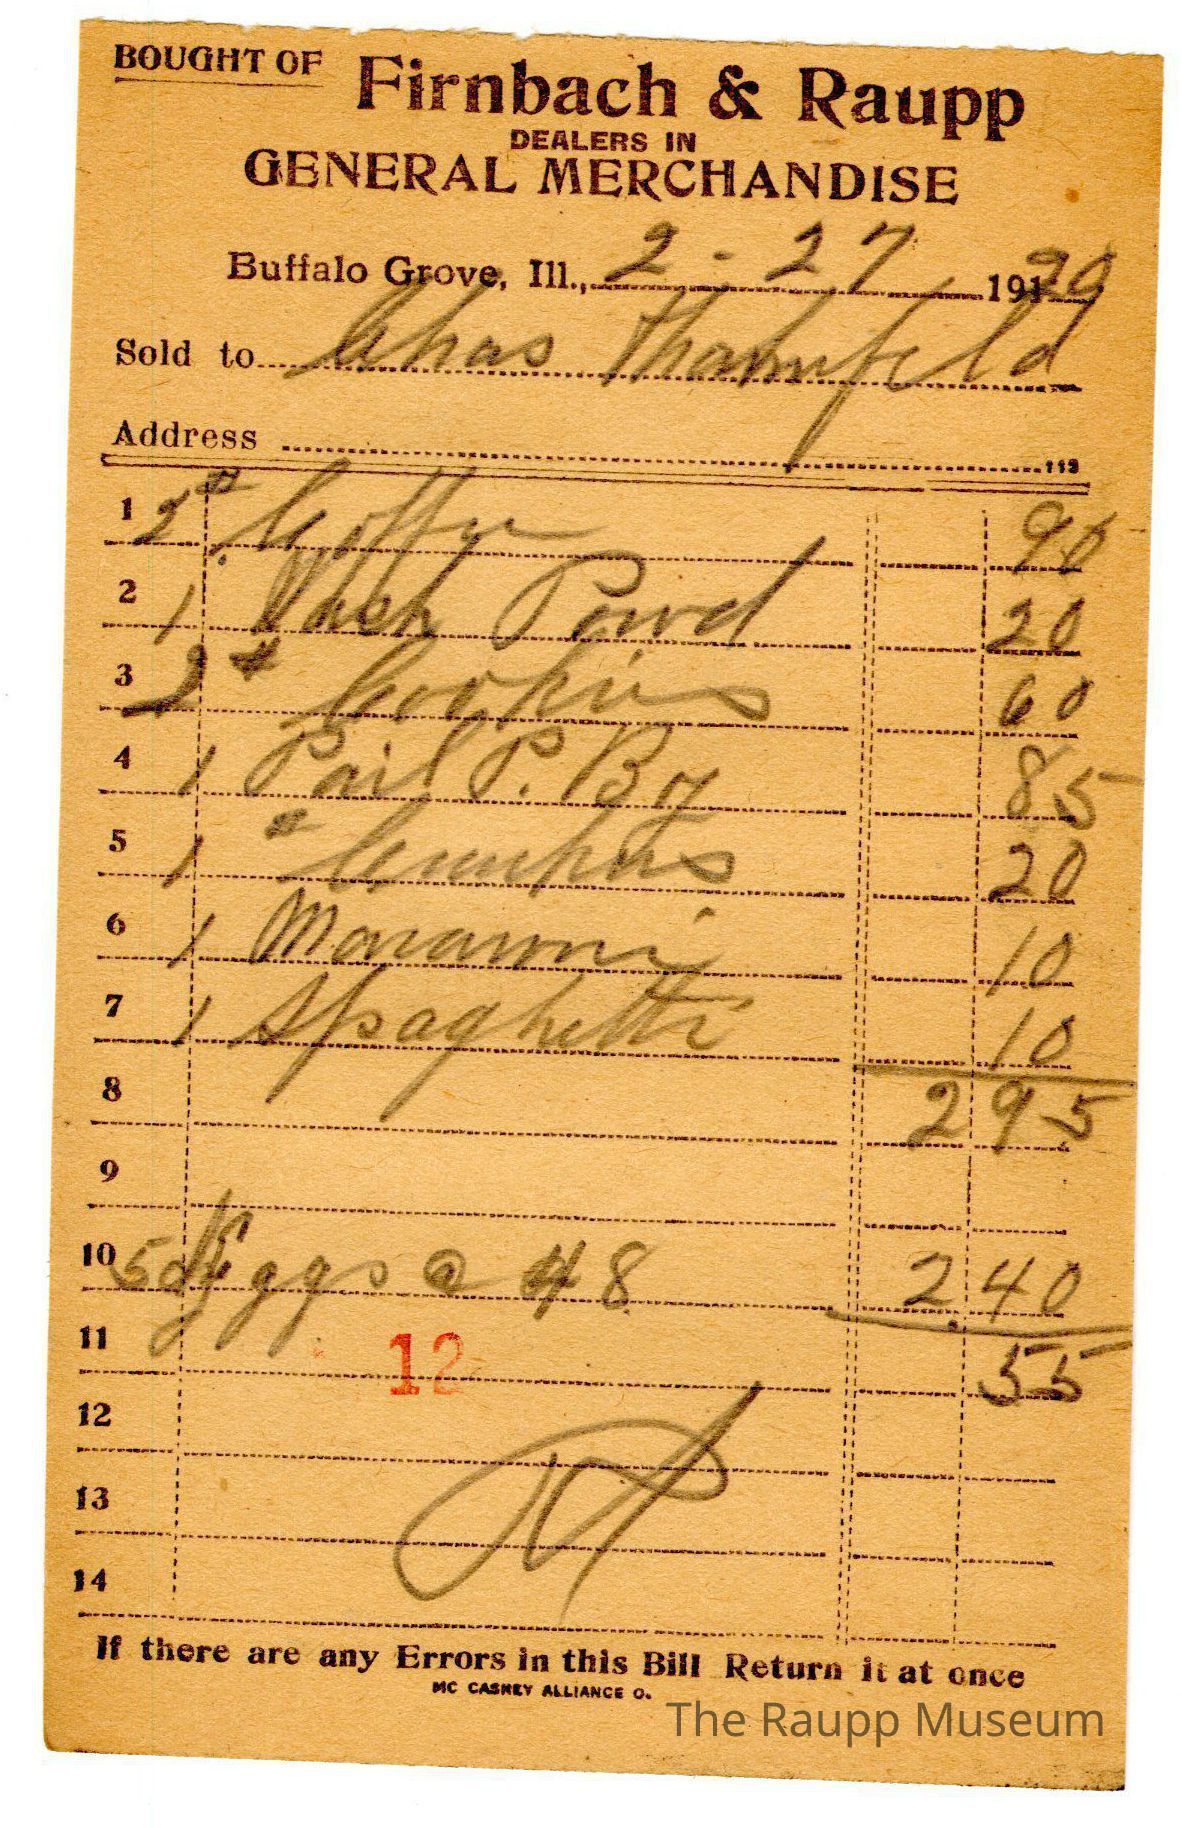 BOUGHT OF Firnbach & Raupp
DEALERS IN
GENERAL MERCHANDISE
Buffalo Grove, Ill., 2-27 191 20
Sold to Chas
Address
113
1 2# Coffee 90
2 1 Wash Powd 20
3 2# Cookies 60
4 1 Pail P. 85
5 1 # 20
6 1 10
7 1 Spaghetti 10
8 2 95
9
10 5d Eggs @ 48 2.40
11 55
12
12
13
14
If there are any Errors in this Bill Return it at once
MC CASKEY ALLIANCE O.
The Raupp Museum